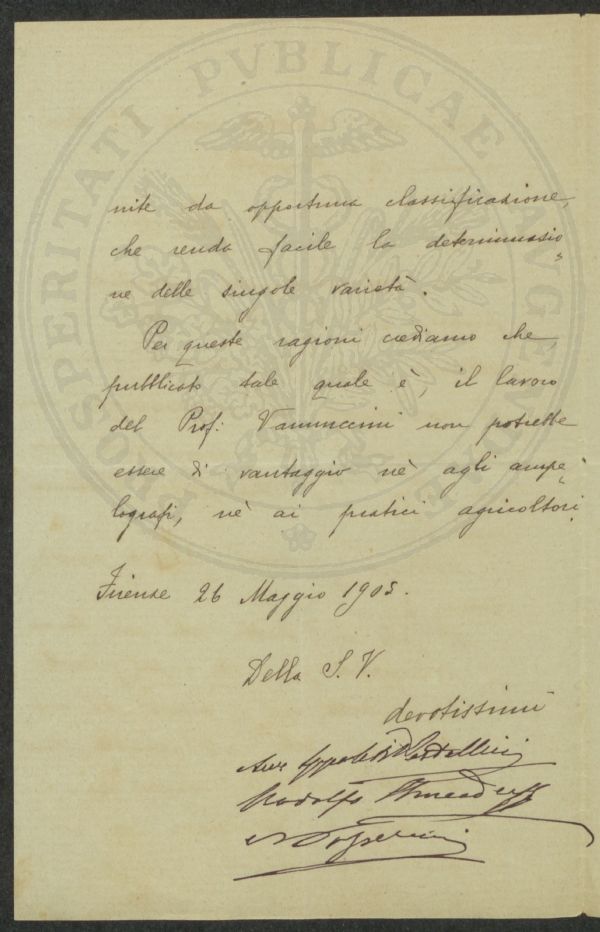 PROSPERITATI PVBLICAE AVGENDAE
nite da opportuna classificazione,
che renda facile la determinazio
ne delle singole varietà.
Per queste ragioni crediamo che,
pubblicato tale quale è, il lavoro
del Prof. Vannuccini non potrebbe
essere di vantaggio nè agli ampe
lografi, nè ai pratici agricoltori.
Firenze 26 Maggio 1905.
Della S. V.
devotissimi
Avv Ippolito Pestellini
Rodolfo